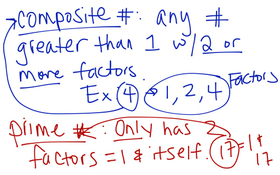 composite #: any #
greater than 1 w/ 2 or
more factors.
Ex 4 → 1, 2, 4 Factors
prime #: Only has 2
factors = 1 & itself. 17 = 1 &
17